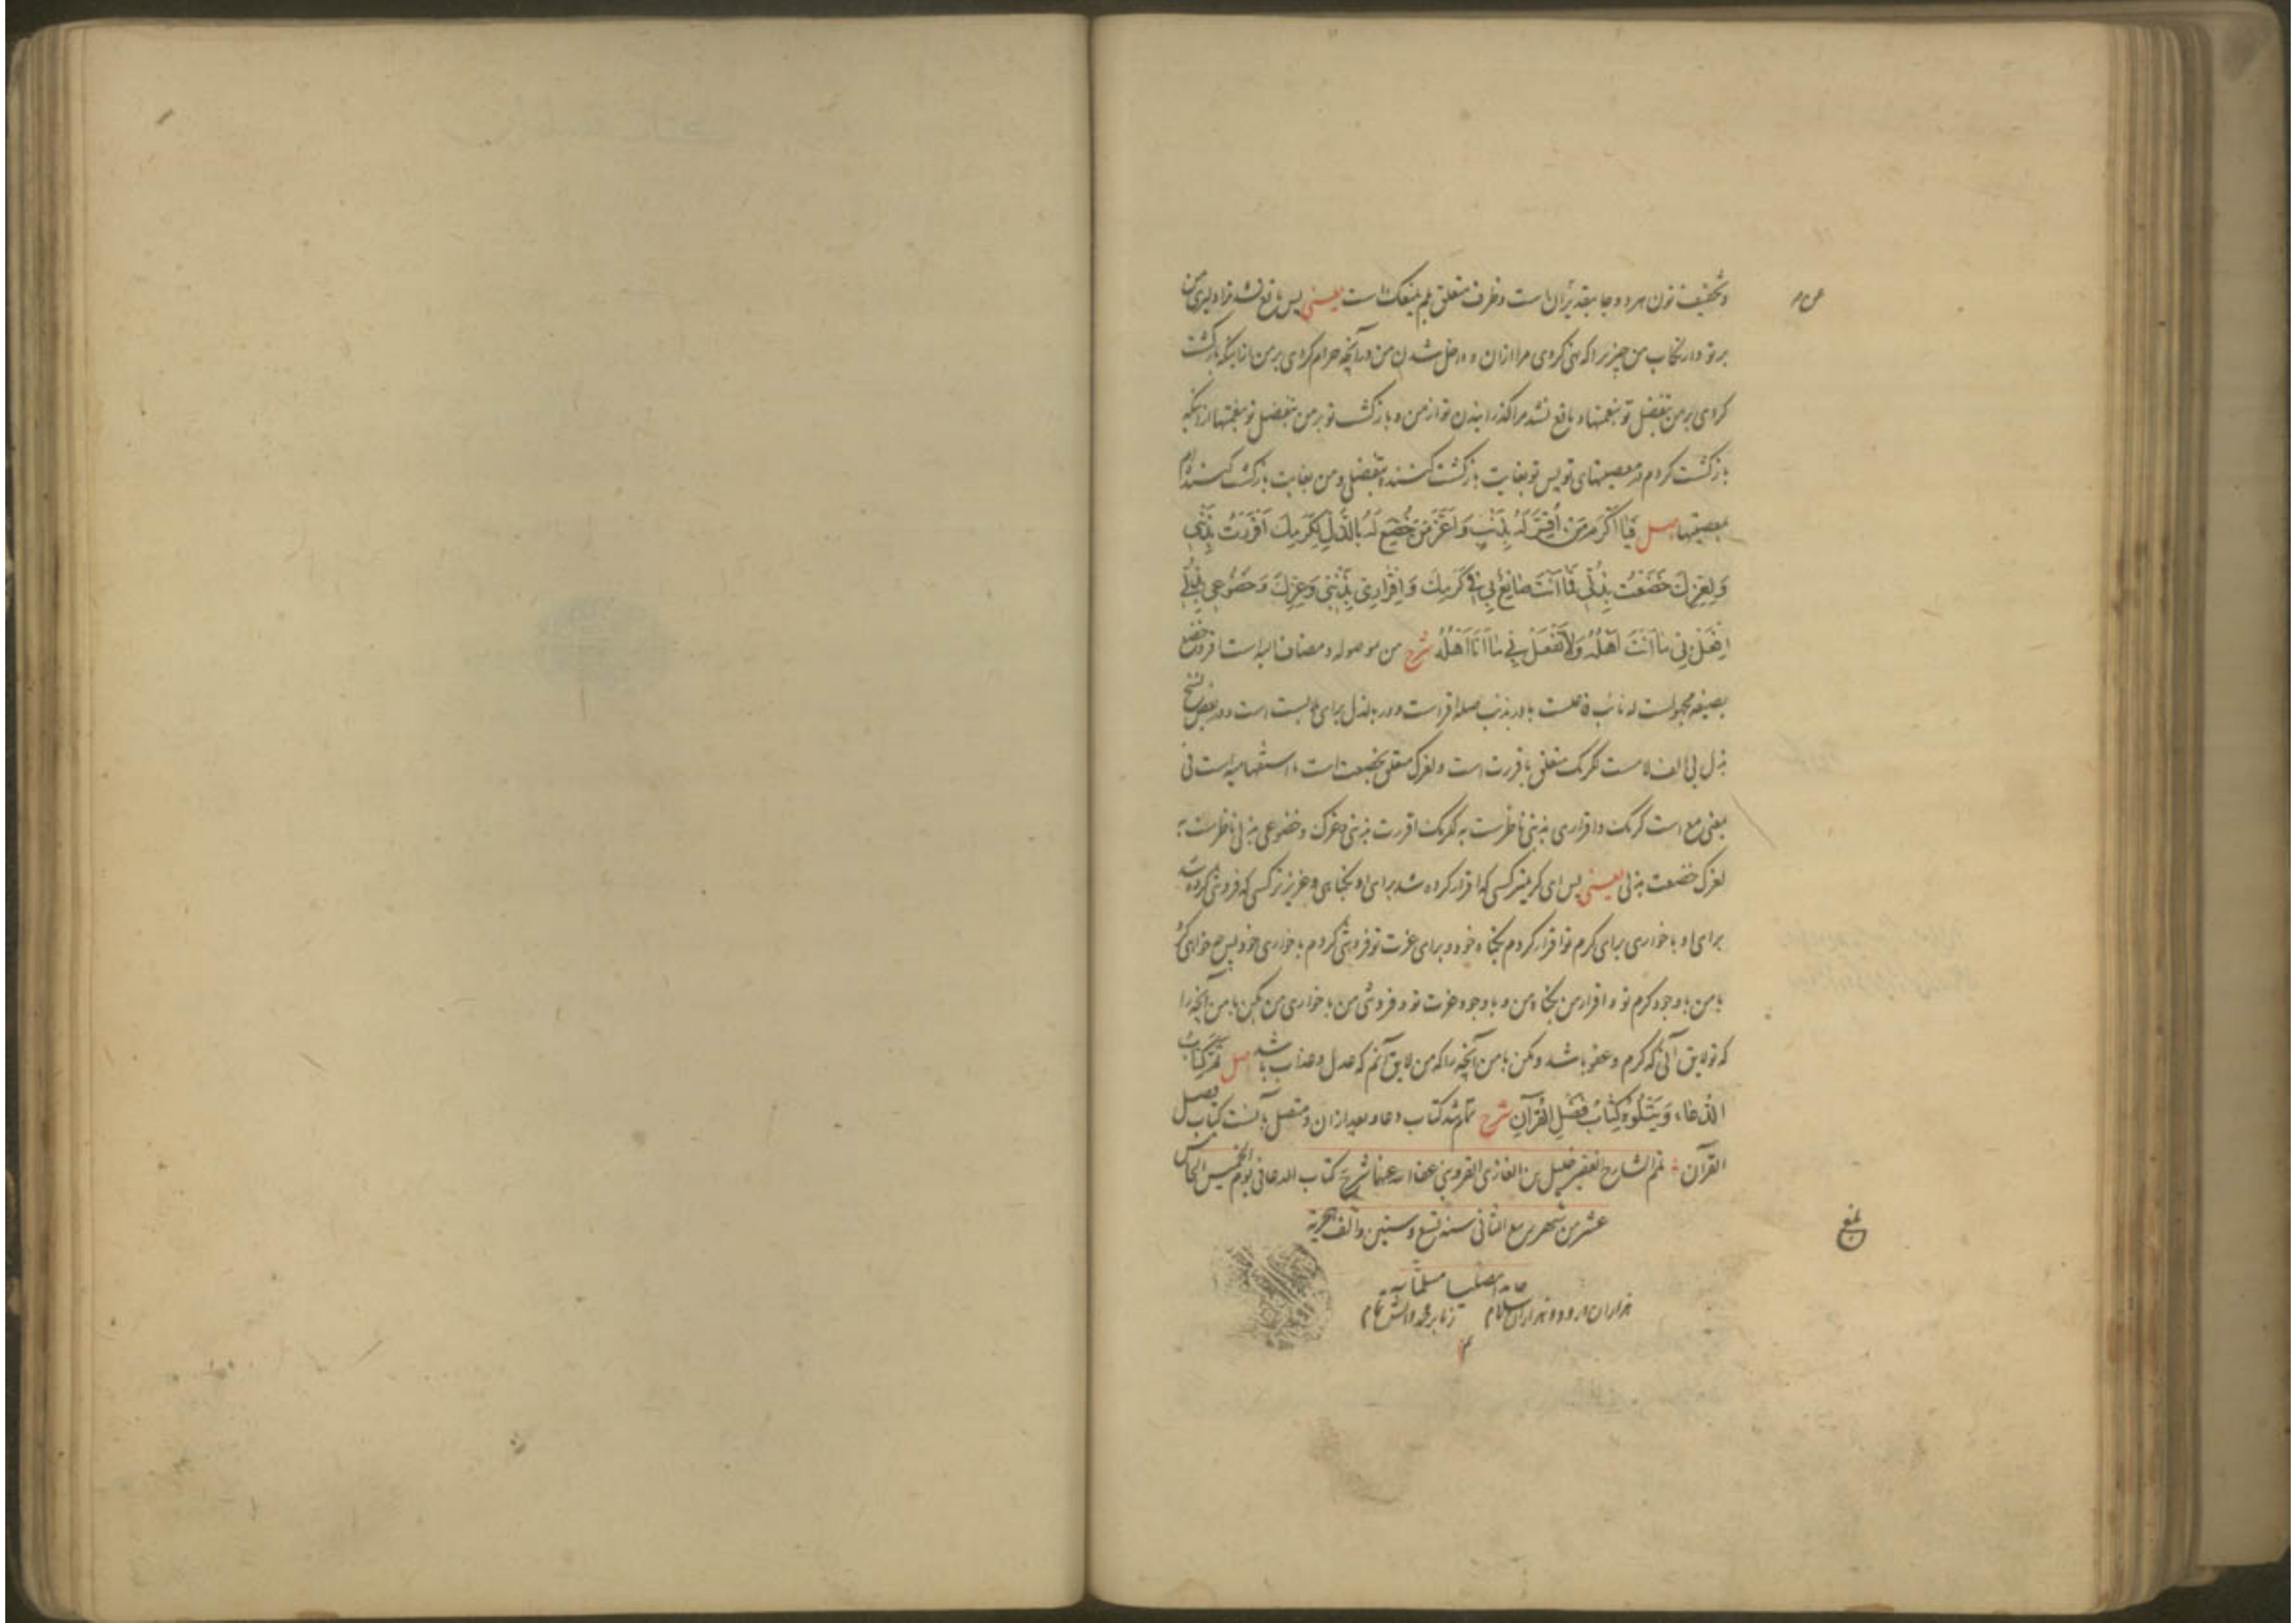 و تخفیف نون هر دو جا بتقدیر آن است و ظرف متعلق بلم یمنعک است یعنی پس مانع نشد ترا دلیری من
بر تو و ارتکاب من چیزیرا که نهی کردی مرا ازان و داخل شدن من در آنچه حرام کردی بر من ازاینکه بازگشت
کردی بر من بتفضل تو بنعمتها و مانع نشد مرا گذرانیدن تو از من و بازگشت تو بر من بتفضل تو بنعمتها ازاینکه
بازگشت کردم در معصیتهای تو پس تو بغایت بازگشت کننده بتفضلی و من بغایت بازگشت کننده‌ام
بمعصیتها اصل فَیٰا اَکْرَمَ مَنْ اُقِرَّ لَهُ بِذَنْبٍ وَ اَعَزَّ مَنْ خُضِعَ لَهُ بِالذُّلِّ لِکَرَمِكَ اَقْرَرْتُ بِذَنْبِی
وَ لِعِزِّكَ خَضَعْتُ بِذُلِّی فَمٰا اَنْتَ صٰانِعٌ بِی فِی کَرَمِكَ وَ اِقْرٰارِی بِذَنْبِی وَ عِزِّكَ وَ خُضُوعِی بِذُلِّی
اِفْعَلْ بِی مٰا اَنْتَ اَهْلُهُ وَ لاٰ تَفْعَلْ بِی مٰا اَنَا اَهْلُهُ شرح من موصوله و مضاف الیه است اقر و خضع
بصیغه مجهولست له نائب فاعلست با در بذنب صله اقر است و در بالذل برای ملابست است و در بعض نسخ
بذل بی الف لامست لکرمک متعلق باقررت است و لعزک متعلق بخضعت است ما استفهامیه است فی
بمعنی مع است کرمک و اقراری بذنبی ناظرست به لکرمک اقررت بذنبی و عزک و خضوعی بذلی ناظرست به
لعزک خضعت بذلی یعنی پس ای کریمتر کسی که اقرار کرده شد برای او بگناهی و عزیزتر کسی که فروتنی کرده شد
برای او با خواری برای کرم تو اقرار کردم بگناه خود و برای عزت تو فروتنی کردم با خواری خود پس چه خواهی کرد
با من با وجود کرم تو و اقرار من بگناه من و با وجود عزت تو و فروتنی من با خواری من بکن با من آنچه را
که تو لایق آنی که کرم و عفو باشد و مکن با من آنچه را که من لایق آنم که عدل و عذاب باشد اصل تَمَّ کِتٰابُ
الدُّعٰاءِ وَ یَتْلُوهُ کِتٰابُ فَضْلِ الْقُرْآنِ شرح تمام شد کتاب دعا و بعد ازان و متصل بآنست کتاب فضل
القرآن تمم الشارح الفقیر خلیل بن الغازی القزوینی عفا الله عنهما شرح کتاب الدعا فی یوم الخمیس الخامس
عشر من شهر ربیع الثانی سنه تسع و ستین و الف هجریة
حامدا مصلیا مسلما
هزاران درود و هزاران سلام ز ما بر محمد و آلش تمام